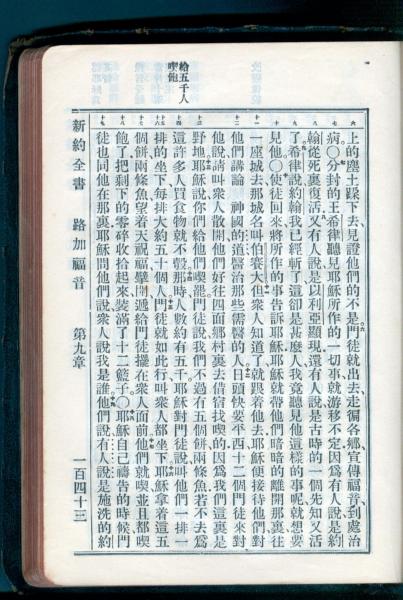 給五千人
喫飽
上的塵土跺下去見證他們的不是門徒就出去走徧各鄉宣傳福音到處治
病〇分封的王希律聽見耶穌所作的一切事就游移不定因爲有人說是約
翰從死裏復活又有人說是以利亞顯現還有人說是古時的一個先知又活
了希律說約翰我已經斬了這卻是甚麽人我竟聽見他這樣的事呢就想要
見他〇使徒回來將所作的事告訴耶穌耶穌就帶他們暗暗的離開那裏往
一座城去那城名叫伯賽大但衆人知道了就跟着他去耶穌便接待他們對
他們講論 神國的道醫治那些需醫的人日頭快要平西十二個門徒來對
他說請叫衆人散開他們好往四面鄉村裏去借宿找喫的因爲我們這裏是
野地耶穌說你們給他們喫罷門徒說我們不過有五個餅兩條魚若不去爲
這許多人買食物就不彀那時人數約有五千耶穌對門徒說叫他們一排一
排的坐下每排大約五十個人門徒就如此行叫衆人都坐下耶穌拿着這五
個餅兩條魚望着天祝福擘開遞給門徒擺在衆人面前他們就喫並且都喫
飽了把剩下的零碎收拾起來裝滿了十二籃子〇耶穌自己禱告的時候門
徒也同他在那裏耶穌問他們說衆人說我是誰他們說有人說是施洗的約
新約全書 路加福音 第九章 一百四十三